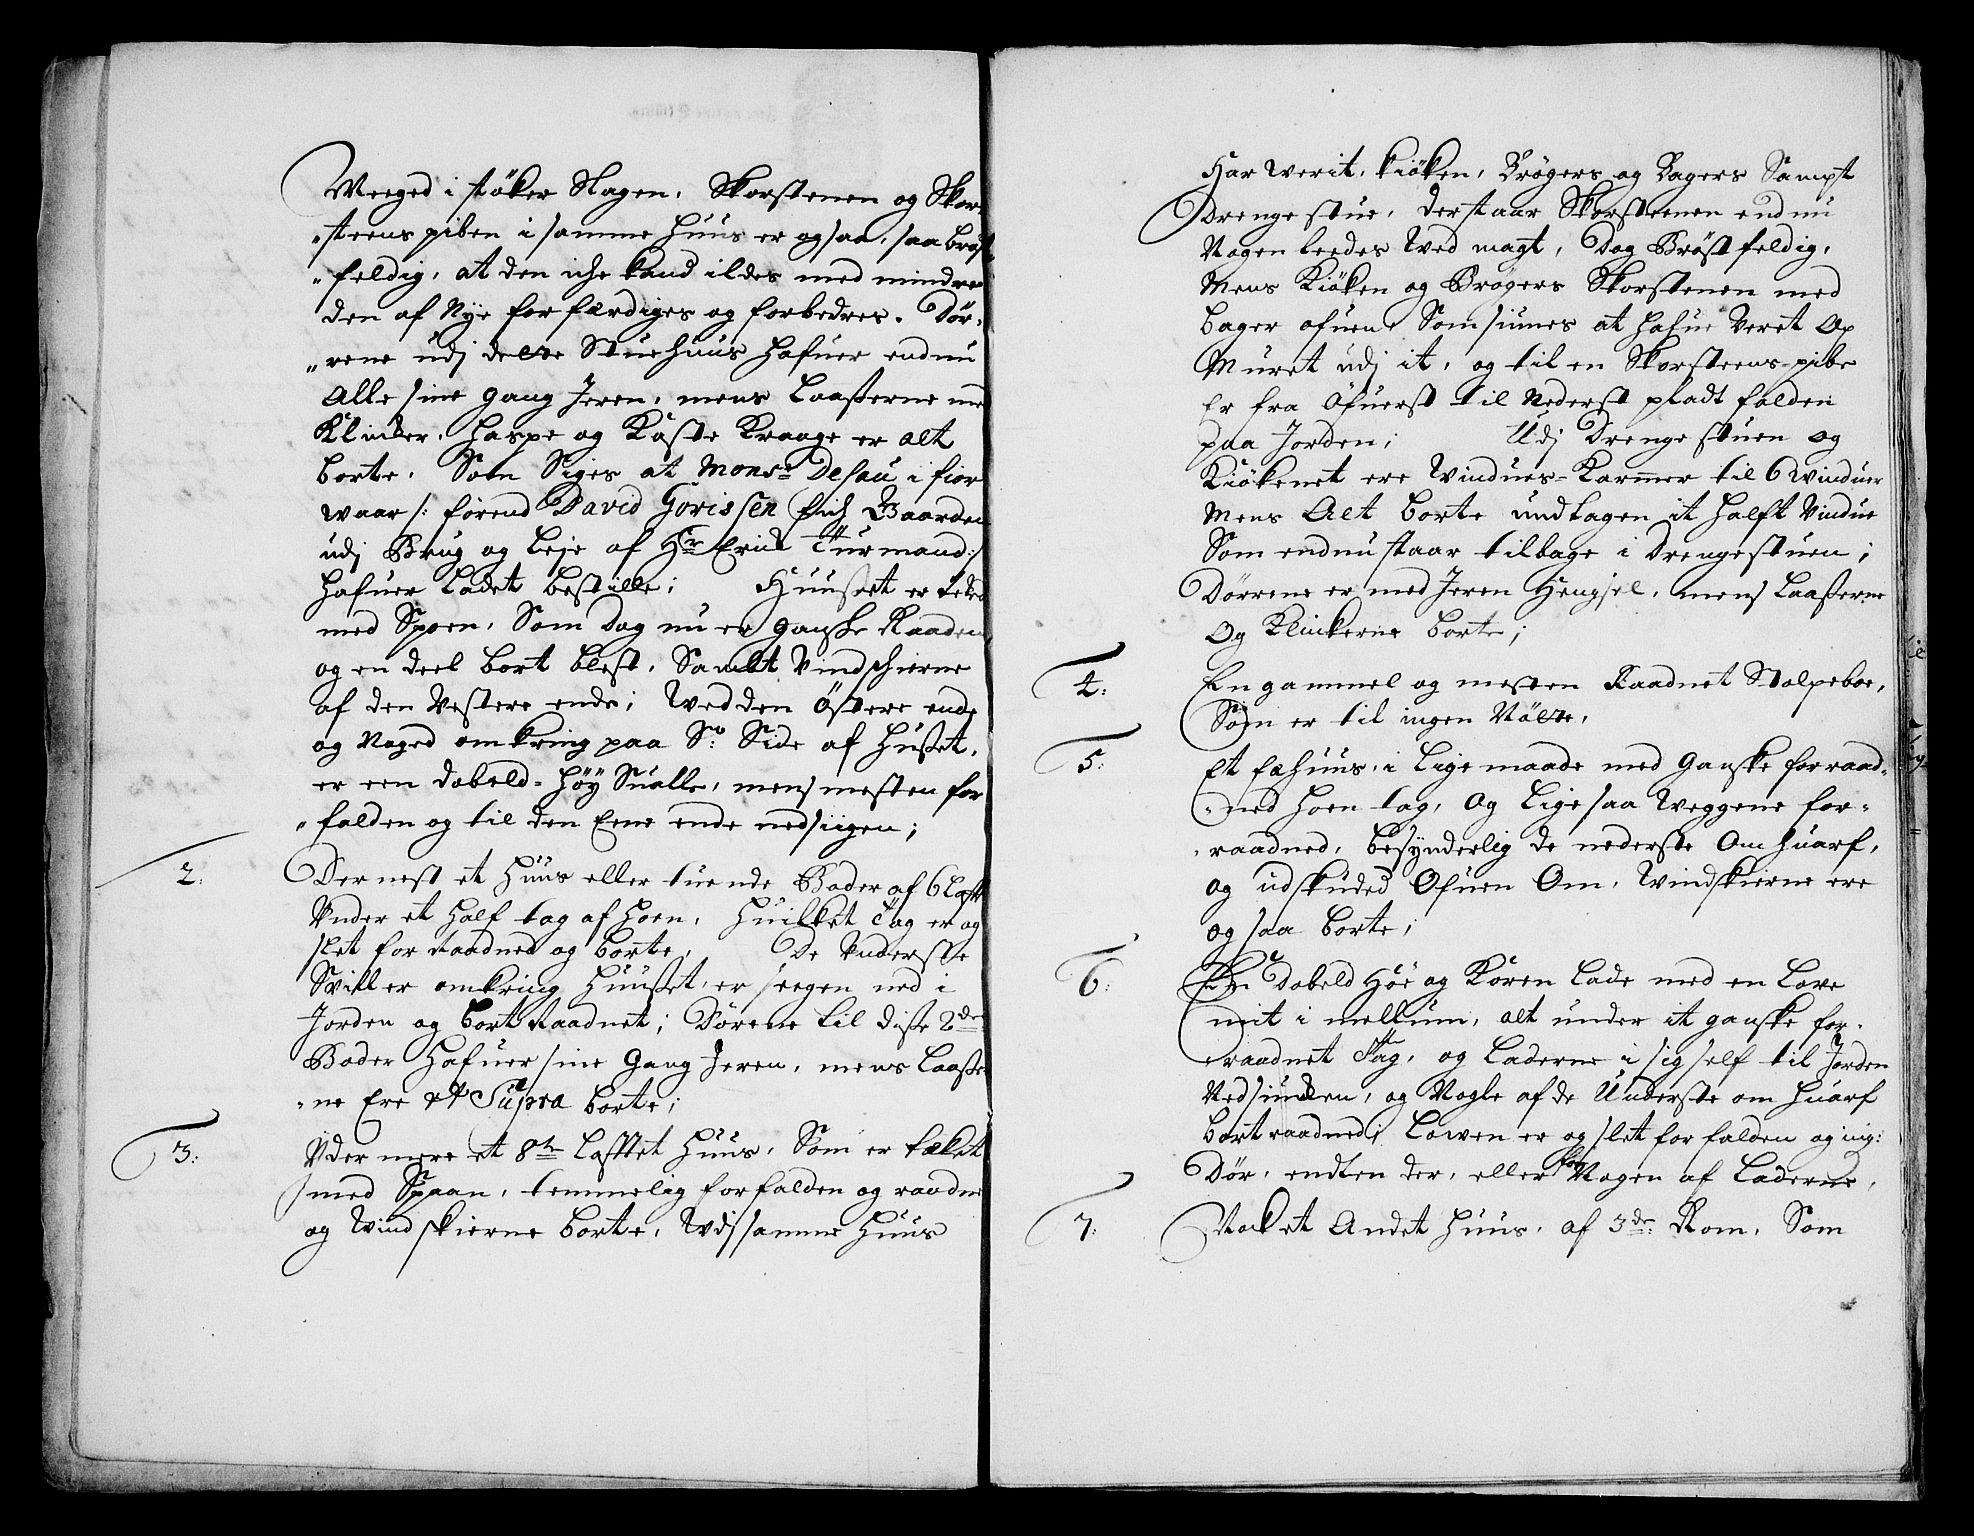 Weeged i støker Slagen, Skorstenen og Skor-
steens piben i samme huus er og saa, saa brøst-
feldig, at den iche kand ildes med mindre
den af Nye forfærdiges og forbedres. Dør-
rene udj dette Stuehuus hafuer endnu
Alle sine gang Jeren, mens Laaßerne med
Klinker, haspe og Kaste Kraage er alt
borte. Som Siges at Monsr Desau i fior
waar /: førend David Gorissen fich Gaarden
udj Brug og leje af Hr Erick Turmand :/
hafuer Ladet bestille; Huuset er teked
med Spoen, Som dog nu er ganske Raaden,
og en deel bort blest, Sambt Vindschierne
af den Vestere ende; Wed den Östere ende
og Noged omkring paa So: Side af Hußet,
er een dobeld-høy Sualle, mens mesten for
falden og til den Eene ende nedsiigen;
2: Dernest et huus eller tuende Boder af 6 Laft
Vnder et half tag af hoen, huilket Tag er og
slet for Raadned og borte, De Vnderste
Sviller omkring huußet, er seegen ned i
Jorden og bort Raadnet; Dörene til diße 2de
Boder hafuer sine Gang Jeren, mens Laaße-
ne Ere ut Supra borte;
3: Vdermere et 8te Lafftet huus, Som er teket
med Spaan, temmelig forfalden og raadne
og Windskierne borte, Udj samme huus
Har werit, kiöken, Brögers og Bagers Sampt
Drenge stue, der staar Skorsteenen endnu
Nogenleedes Wed magt, Dog Bröstfeldig,
Mens Kiöken og Brögers Skorstenen med
bager ofuene Som siunes at hafue Veret Op
Muret udj it, og til en Skorsteens-pibe
Er fra Öfuerst til Nederst pladt falden
paa Jorden; Udj Drenge stuen og
Kiökenet ere Vindues-Karmer til 6 winduer
Mens Alt borte undtagen it halft Vindue
Som endnu staar tilbage i Drengestuen;
Dörrene er med Jeren Hengsel, mens Laaßerne
Og Klinkerne borte;
4: En gammel og mesten Raadnet Stolpeboe,
Som er til ingen Nötte,
5: Et fæhuus, i Lige maade med ganske forraad-
ned hoen tag, Og Ligesaa Weggene for-
raadned, besynderlig de nederste Omhuarf,
og udskuded Ofuen Om, Windskierne ere
og saa borte;
6: En Dobeld Höe og Koren Lade med en Love
mit i mellum, alt under it ganske for-
raadnet Tag, og Laderne i sig self til Jorden
Nedsuncken, og Nogle af de Underste om huarf
bort raadned; Lowen er og slet forfalden og ing:
Dör, endten der, eller for Nogen af Laderne,
7: Nok et Andet huus, af 3de Rom, Som